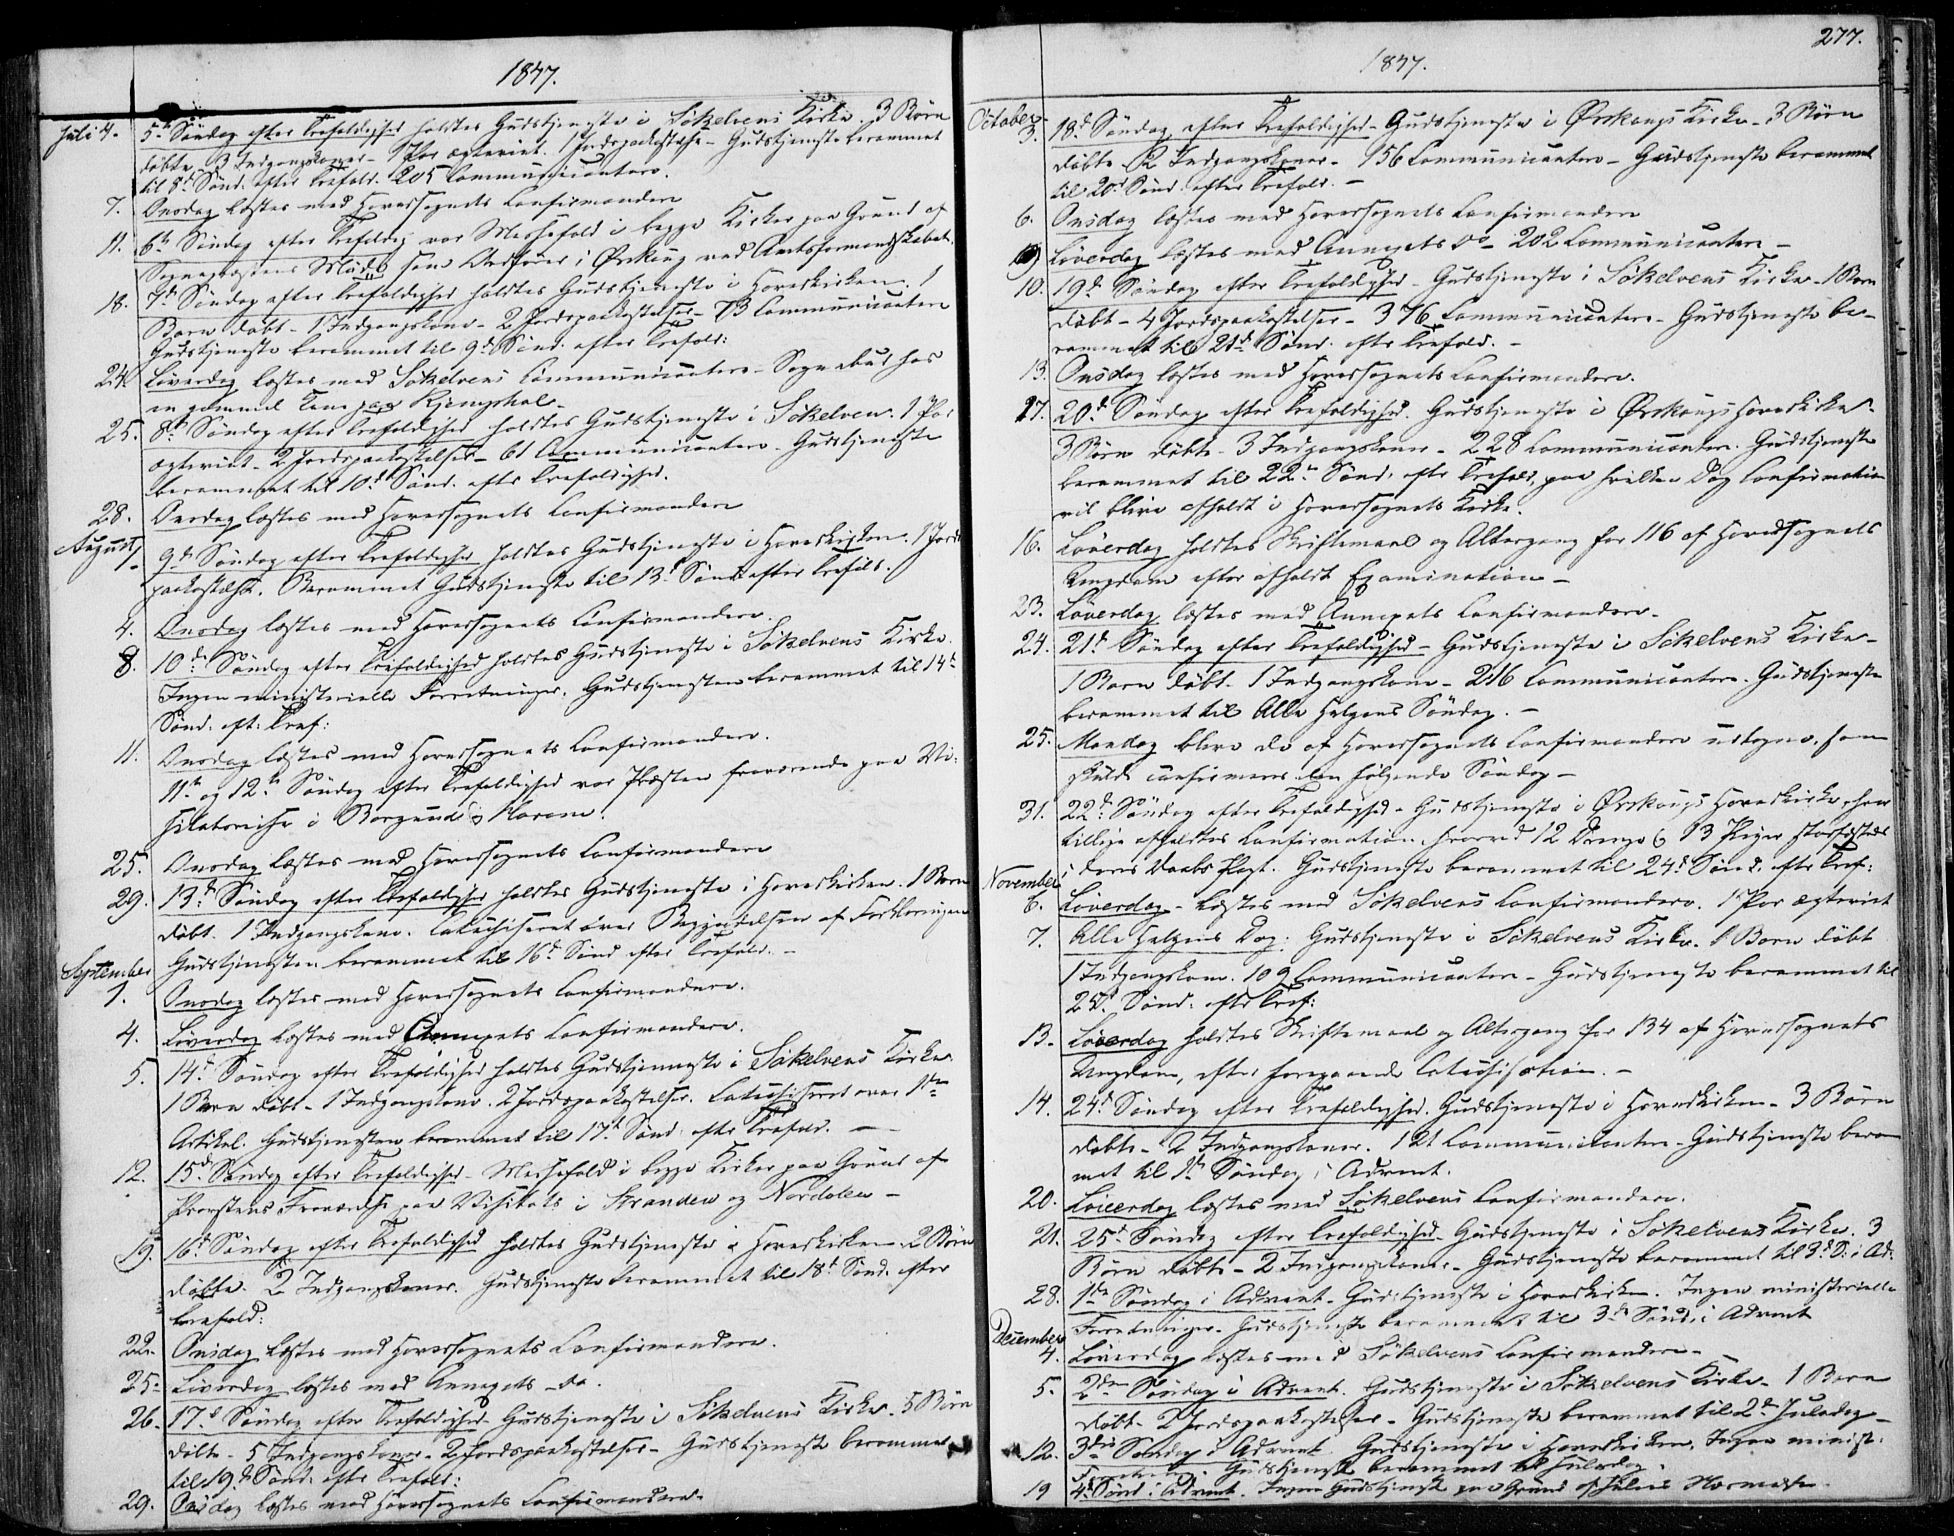 1847.
Juli 4. 5te Søndag efter Trefoldighed holdtes Gudstjeneste i Søkelvens Kirke. 3 Børn
døbte. 3 Indgangskoner - 1 Par ægteviet. 1 Jordpaakastelse - Gudstjeneste berammet
til 8de Sønd. efter Trefold. 205 Communicantere.
7. Onsdag læstes med Hovedsognets Confirmandere
11. 6te Søndag efter Trefoldig. var Messefald i begge Kirker paa Grund af
Sognepræstens Møde som Ordfører i Ørskoug ved Amtsformandskabet.
18. 7de Søndag efter Trefoldighed holdtes Gudstjeneste i Hovedkirken. 1
Barn døbt - 1 Indgangskone - 2 Jordpaakastelser - 73 Communicantere
Gudstjeneste berammet til 9de Sønd. efter Trefold:
24. Løverdag læstes med Søkelvens Communicantere - Sognebud hos
en gammel Kone paa
25. 8de Søndag efter Trefoldighed holdtes Gudstjeneste i Søkelven. 1 Par
ægteviet - 2 Jordpaakastelser - 61 Communicantere. Gudstjeneste
berammet til 10de Sønd. efter Trefoldighed.
28. Onsdag læstes med Hovedsognets Confirmandere
August 1. 9de Søndag efter Trefoldighed holdtes Gudstjeneste i Hovedkirken. 1 Jord-
paakastelse. Berammet Gudstjeneste til 13de Sønd. efter Trefold.
4. Onsdag læstes med Hovedsognets Confirmandere.
8. 10de Søndag efter Trefoldighed holdtes Gudstjeneste i Søkelvens Kirke.
Ingen ministerielle Forretninger. Gudstjenesten berammet til 14de
Sønd. eft: Tref:
11. Onsdag læstes med Hovedsognets Confirmandere.
11te og 12te Søndag efter Trefoldighed var Præsten fraværende paa Vi-
sitatsreise i Borgund og Haram.
25. Onsdag læstes med Hovedsognets Confirmandere
29. 13de Søndag efter Trefoldighed holdtes Gudstjeneste i Hovedkirken. 1 Barn
døbt. 1 Indgangskone. Catechiseret over Begyndelsen af Forklaringen
Gudstjenesten berammet til 16de Sønd efter Trefold. -
September
1. Onsdag læstes med Hovedsognets Confirmandere.
4. Løverdag læstes med Annexets Confirmandere.
5. 14de Søndag efter Trefoldighed holdtes Gudstjeneste i Søkelvens Kirke
1 Barn døbt - 1 Indgangskone. 2 Jordpaakastelser. Catechiseret over 1ste
Artikel. Gudstjenesten berammet til 17de Sønd. efter Trefold. -
12. 15de Søndag efter Trefoldighed - Messefald i begge Kirker paa Grund af
Provstens Fraværelse paa Visitats i Stranden og Nordalen -
19. 16de Søndag efter Trefoldighed holdtes Gudstjeneste i Hovedkirken. 2 Børn
døbte. 2 Indgangskoner. Gudstjeneste berammet til 18de Sønd. efter
Trefold:
22. Onsdag læstes med Hovedsognets Confirmandere.
25. Løverdag læstes med Annexets - do.
26. 17de Søndag efter Trefoldighed Gudstjeneste i Søkelvens Kirke. 5 Børn
døbte - 5 Indgangskoner - 2 Jordpaakastelser - Gudstjeneste berammet
til 19de Sønd. efter Trefold:
29. Onsdag læstes med Hovedsognets Confirmandere.
277.
1847.
October
3. 18de Søndag efter Trefoldighed - Gudstjeneste i Ørskougs Kirke - 3 Børn
døbte 2 Indgangskoner - 156 Communicantere - Gudstjeneste berammet
til 20de Sønd. efter Trefold. -
6. Onsdag læstes med Hovedsognets Confirmandere
9. Løverdag læstes med Annexets do - 202 Communicantere -
10. 19de Søndag efter Trefoldighed - Gudstjeneste i Søkelvens Kirke - 1 Barn
døbt - 4 Jordpaakastelser - 376 Communicantere - Gudstjeneste be-
rammet til 21de Sønd. efter Trefold. -
13. Onsdag læstes med Hovedsognets Confirmandere.
17. 20de Søndag efter Trefoldighed. Gudstjeneste i Ørskougs Hovedkirke.
3 Børn døbte - 3 Indgangskoner - 228 Communicantere. Gudstjeneste
berammet til 22de Sønd. efter Trefold, paa hvilken Dag Confirmation
vil blive afholdt i Hovedsognets Kirke.
16. Løverdag holdtes Skriftemaal og Altergang for 116 af Hovedsognets
Ungdom efter afholdt Examination -
23. Løverdag læstes med Annexets Confirmandere -
24. 21de Søndag efter Trefoldighed - Gudstjeneste i Søkelvens Kirke -
1 Barn døbt - 1 Indgangskone - 216 Communicantere. Gudstjeneste
berammet til Alle Helgens Søndag. -
25. Mandag bleve de af Hovedsognets Confirmandere udtagne, som
skulde confirmeres den følgende Søndag -
31. 22de Søndag efter Trefoldighed - Gudstjeneste i Ørskougs Hovedkirke, hvor
tillige afholdtes Confirmation, hvorved 12 Drenge og 13 Piger stadfæstedes
i deres Daabs Pagt. Gudstjeneste berammet til 24de Sønd. efter Tref:
November
6. Løverdag - læstes med Søkelvens Confirmandere. 1 Par ægteviet
7. Alle Helgens Dag: Gudstjeneste i Søkelvens Kirke. 1 Barn døbt
1 Indgangskone. 109 Communicantere - Gudstjeneste berammet til
25de Sønd: efter Tref:
13. Løverdag holdtes Skriftemaal og Altergang for 134 af Hovedsognets
Ungdom, efter foregaaende Catechisation. -
14. 24de Søndag efter Trefoldighed. Gudstjeneste i Hovedkirken - 3 Børn
døbte - 2 Indgangskoner. 121 Communicantere - Gudstjeneste beram-
met til 1ste Søndag i Advent.
20. Løverdag læstes med Søkelvens Confirmandere.
21. 25de Søndag efter Trefoldighed - Gudstjeneste i Søkelvens Kirke. 3
Børn døbte - 2 Indgangskoner - Gudstjeneste berammet til 2de S. i Ad:
28. 1ste Søndag i Advent - Gudstjeneste i Hovedkirken. Ingen ministerielle
Forretninger. Gudstjeneste berammet til 3de Sønd: i Advent
December
4. Løverdag læstes med Søkelvens Confirmandere -
5. 2den Søndag i Advent. Gudstjeneste i Søkelvens Kirke - 1 Barn
døbt - 2 Jordpaakastelser - Gudstjeneste berammet til 2de Juledag -
12. 3die Søndag i Advent. Gudstjeneste i Hovedkirken. Ingen minist:
Gudstjeneste berammet til Juledag.
19 4de Sønd. i Advent. Ingen Gudstjeneste paa Grund af